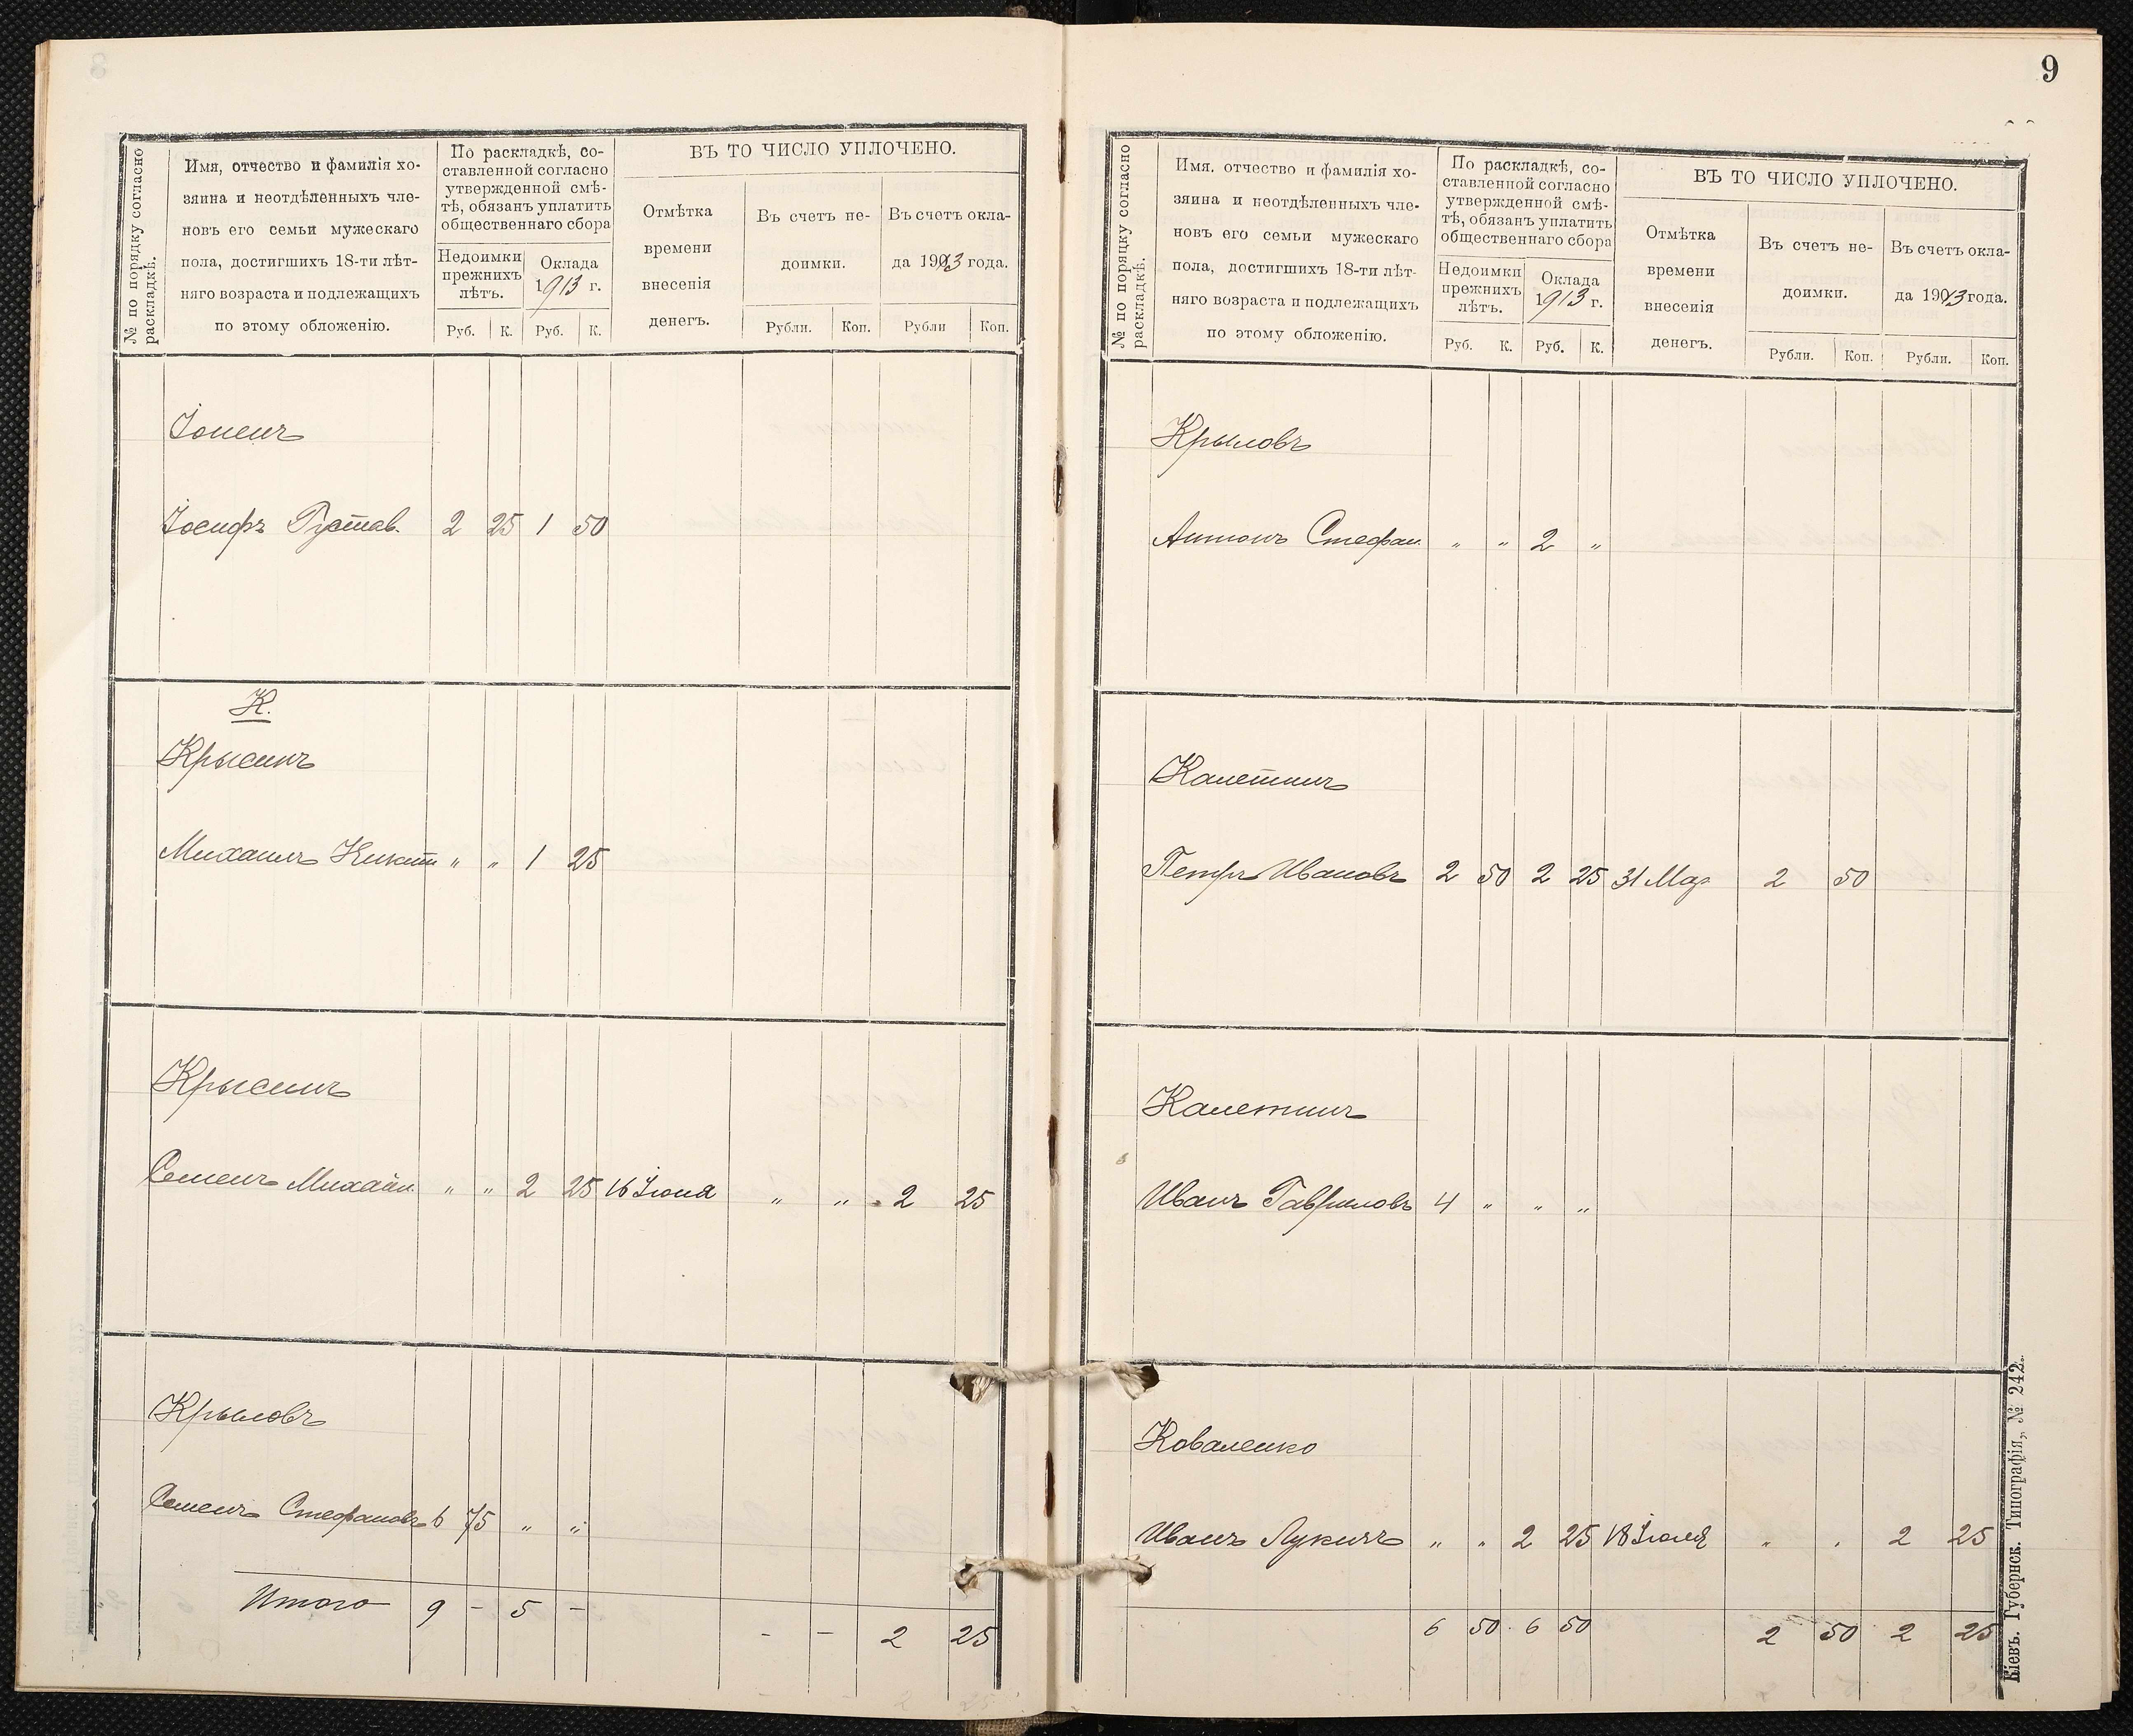 № по порядку согласно
раскладкѣ.
Имя, отчество и фамилія хо-
зяина и неотдѣленныхъ чле-
новъ его семьи мужескаго
пола, достигшихъ 18-ти лѣт-
няго возраста и подлежащихъ
по этому обложенію.
По раскладкѣ, со-
ставленной согласно
утвержденной смѣ-
тѣ, обязанъ уплатить
общественнаго сбора
Недоимки
прежнихъ
лѣтъ.
Оклада
1913 г.
Руб. К. Руб. К.
ВЪ ТО ЧИСЛО УПЛОЧЕНО.
Отмѣтка
времени
внесенія
денегъ.
Въ счетъ не-
доимки.
Въ счетъ окла-
да 1913 года.
Рубли. Коп. Рубли Коп.
Іосифъ Густав. 2 25 1 50
К.
Крысинъ
Михаилъ Никит „ „ 1 25
Крысинъ
Семенъ Михайл. „ „ 2 25 16 Іюня „ „ 2 25
Крыловъ
Семенъ Стефановъ 6 75 „ „
Итого 9 – 5 – - – 2 25
9
№ по порядку согласно
раскладкѣ.
Имя. отчество и фамилія хо-
зяина и неотдѣленныхъ чле-
новъ его семьи мужескаго
пола, достигшихъ 18-ти лѣт-
няго возраста и подлежащихъ
по этому обложенію.
По раскладкѣ, со-
ставленной согласно
утвержденной смѣ-
тѣ, обязанъ уплатить
общественнаго сбора
Недоимки
прежнихъ
лѣтъ.
Оклада
1913 г.
Руб. К. Руб. К.
ВЪ ТО ЧИСЛО УПЛОЧЕНО.
Отмѣтка
времени
внесенія
денегъ.
Въ счетъ не-
доимки.
Въ счетъ окла-
да 1913 года.
Рубли. Коп. Рубли. Коп.
Крыловъ
Антонъ Стефан. „ „ 2 „
Калеткинъ
Петръ Ивановъ 2 50 2 25 31 Мар 2 50
Калеткинъ
Иванъ Гавриловъ 4 „ „ „
Коваленко
Иванъ Лукичъ „ „ 2 25 18 Іюля „ „ 2 25
6 50 6 50 2 50 2 25
Кіевъ. Губернск. Типографія, № 242.